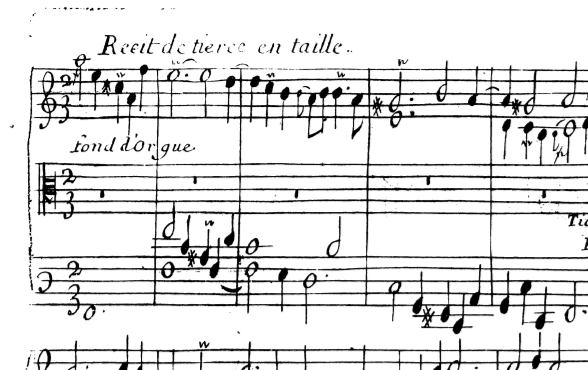 Recit de tierce en taille..
2
3
fond d'Orgue
2
3
Tie
2
3